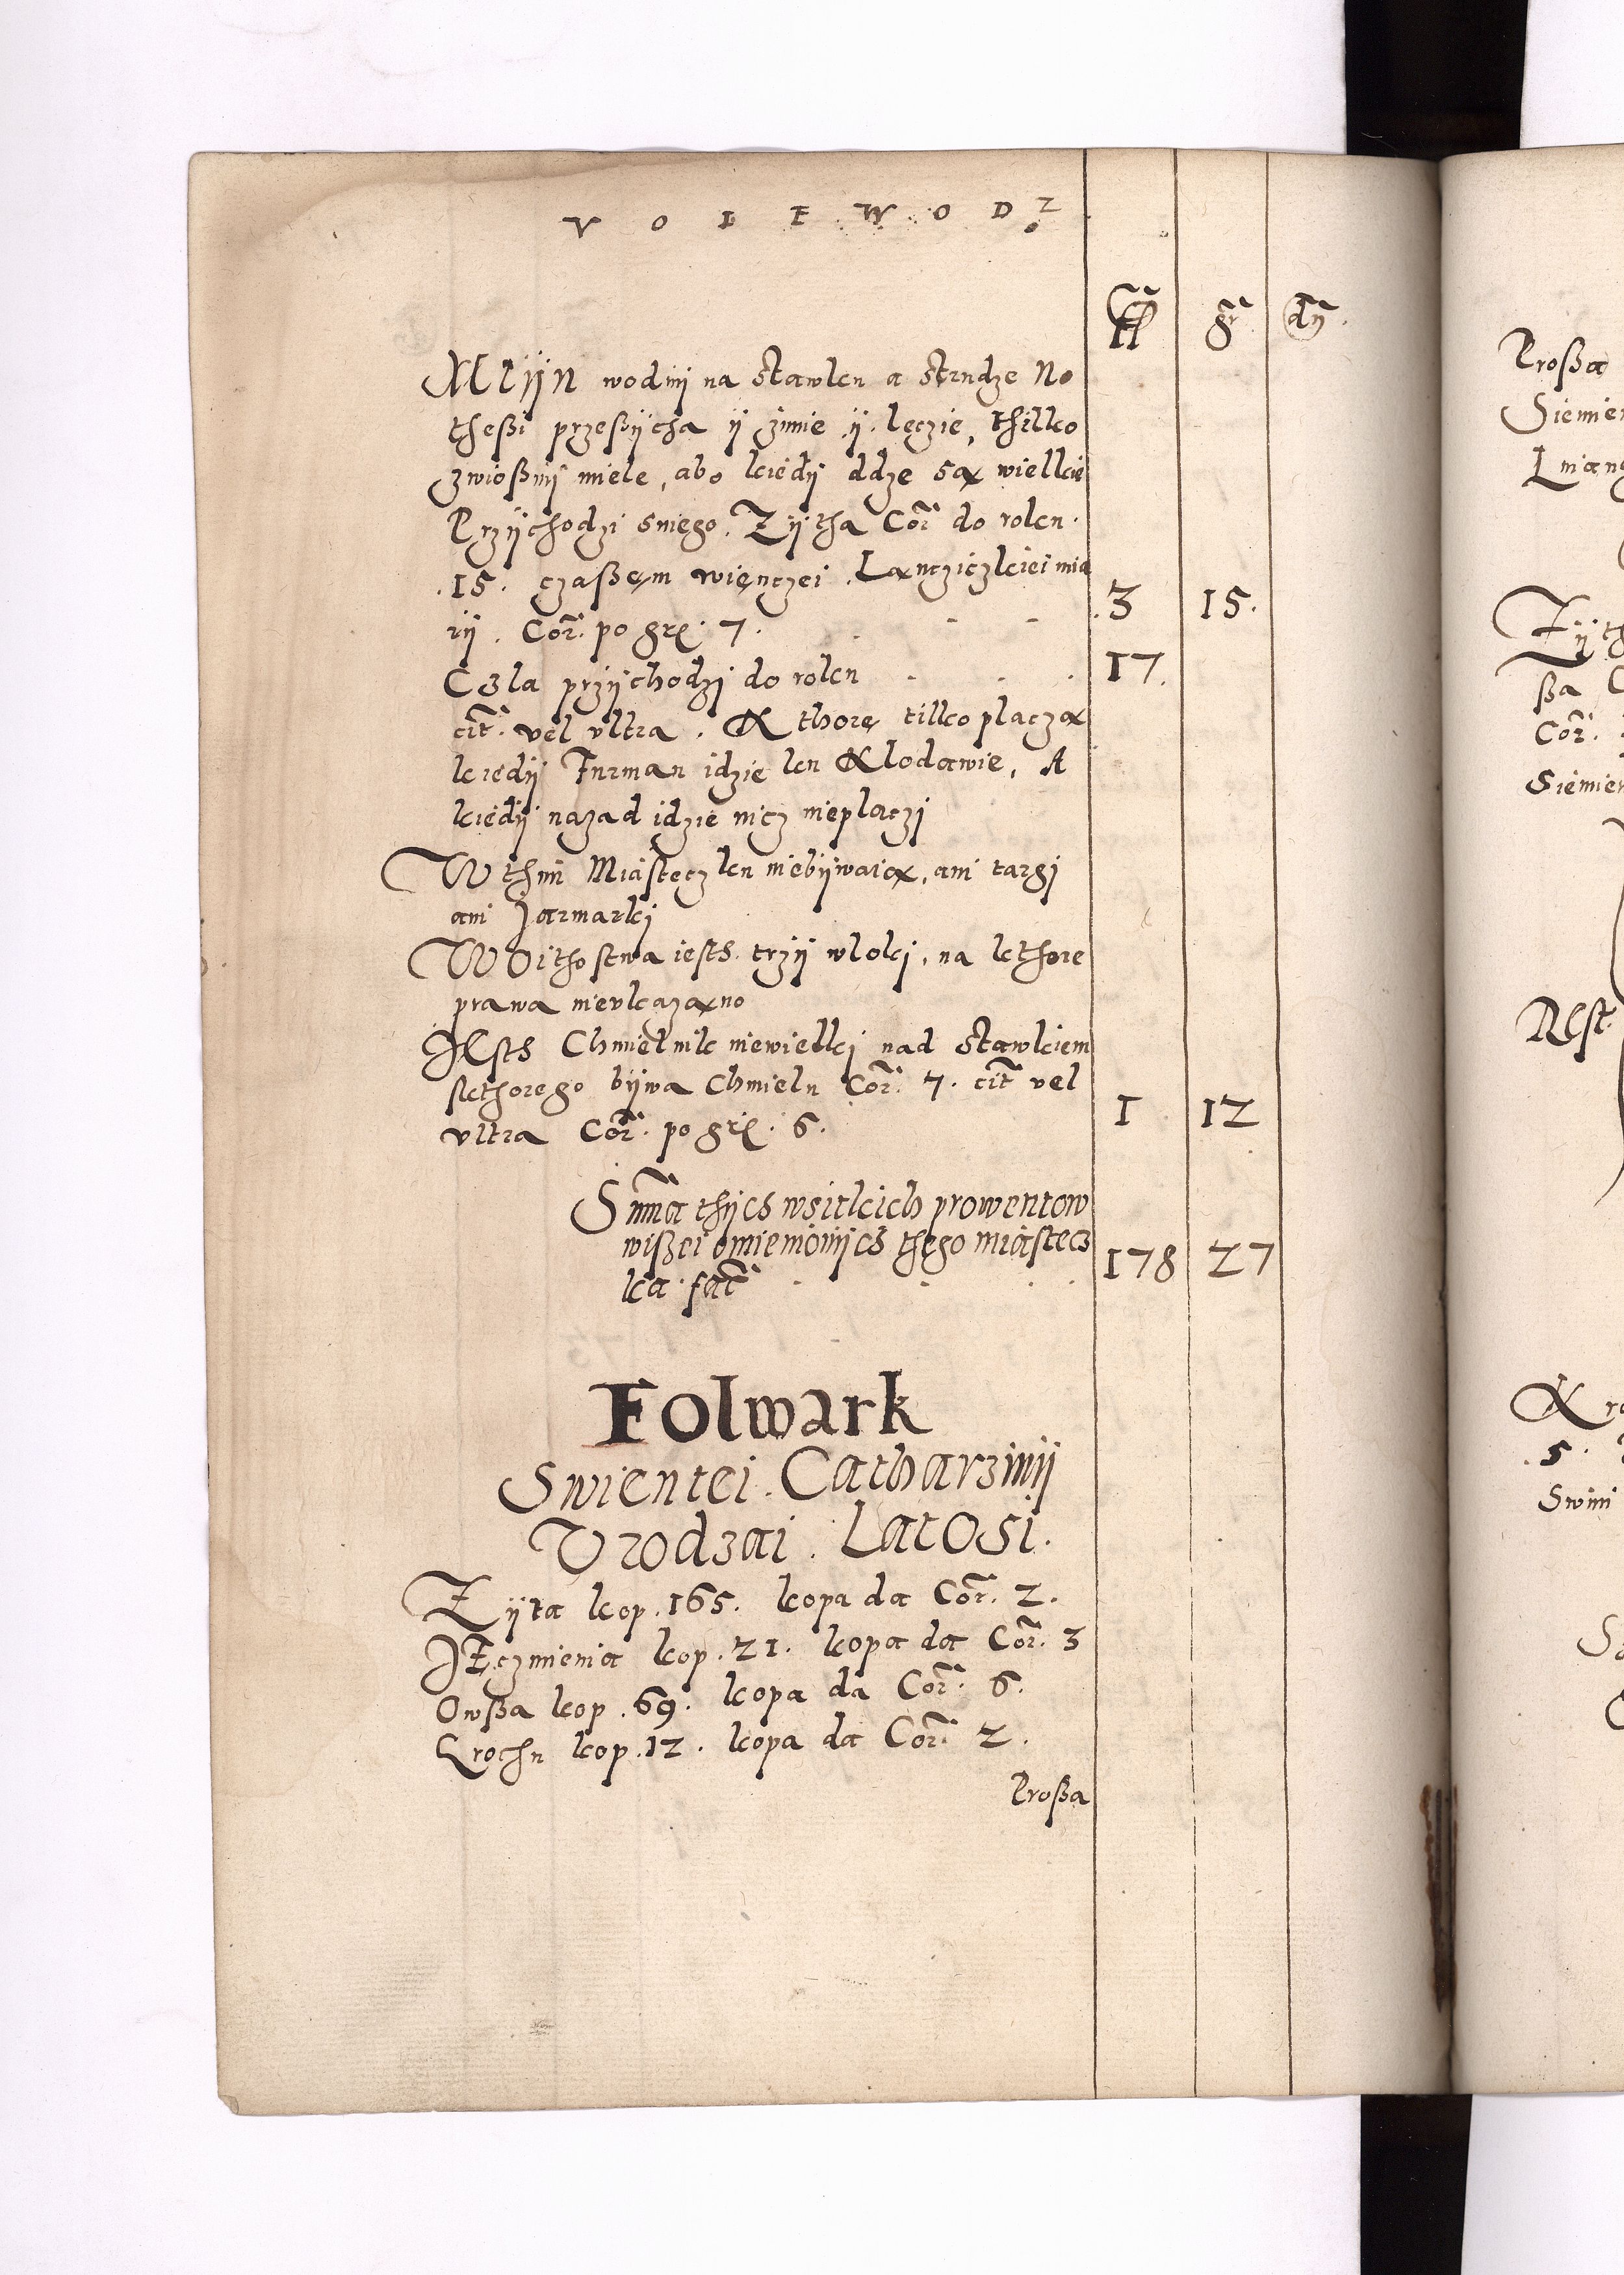 VOIEWODZ.
fl gr dn.
Młÿn wodnÿ na Stawku a Strudze No
theßi przeßÿcha ÿ zimie ÿ lęczie, thilko
zwioßnÿ miele, abo kiedÿ ddze są wielkie
Przÿchodzi sniego. Zÿtha Cor. do roku.
.15. czaßęm więnczei. Lanczÿczkiei mia
rÿ. Cor. po grę. 7. 3 15.
Czla przÿchodzi do roku 17.
cit. vel vltra. Kthorę tilko placzą
kiedÿ Furman idzie ku Klodawie, A
kiedÿ nazad idzie nicz nieplaczi
Wthim Miasteczku niebÿwaią, ani targi
ani Jarmarki
Woithostwa iesth. trzÿ wloki, na kthore
prawa nievkazano
Jesth Chmielnik niewielki nad Stawkiem
skthorego bÿwa Chmielu Cor. 7. cit vel
vltra Cor. po grę. 6. 1 12
Suma thÿch wsitkich prowentow
wißei omienionÿch thego miastecz
ka. fac. 178 27
Folwark
Swientei. Catharzinÿ
Vrodzai. Latosi.
Zÿta kop. 165. kopa da Cor. 2.
Jęczmienia kop. 21. kopa da Cor. 3
Owßa kop. 69. kopa da Cor. 6.
Grochu kop. 12. kopa da Cor. 2.
Proßa
Proßa
Cor.
5.
Swini